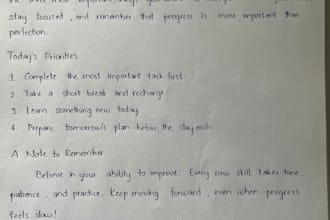 stay focused , and remember that progress is more important than
perfection.
Today's Priorities
1. Complete the most important task first.
2. Take a short break and recharge.
3. Learn something new today.
4. Prepare tomorrow's plan before the day ends.
A Note to Remember
Believe in your ability to improve. Every new skill takes time,
patience , and practice. Keep moving forward , even when progress
feels slow!